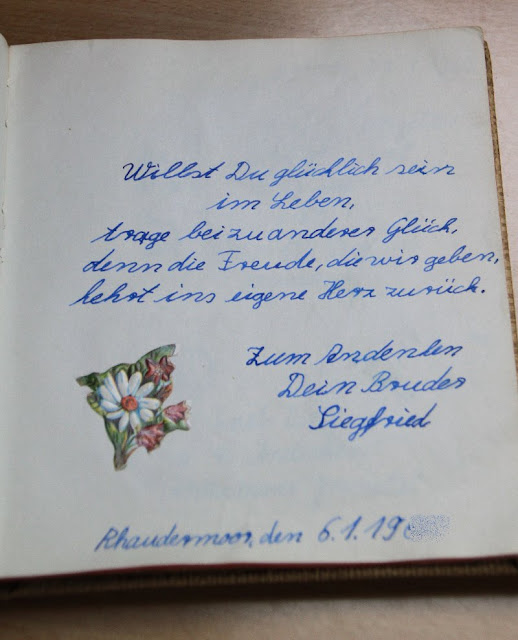 Willst Du glücklich sein
im Leben,
trage bei zu anderer Glück,
denn die Freude, die wir geben,
kehrt ins eigene Herz zurück.
Zum Andenken
Dein Bruder
Siegfried
Rhaudermoor, den 6.1.19